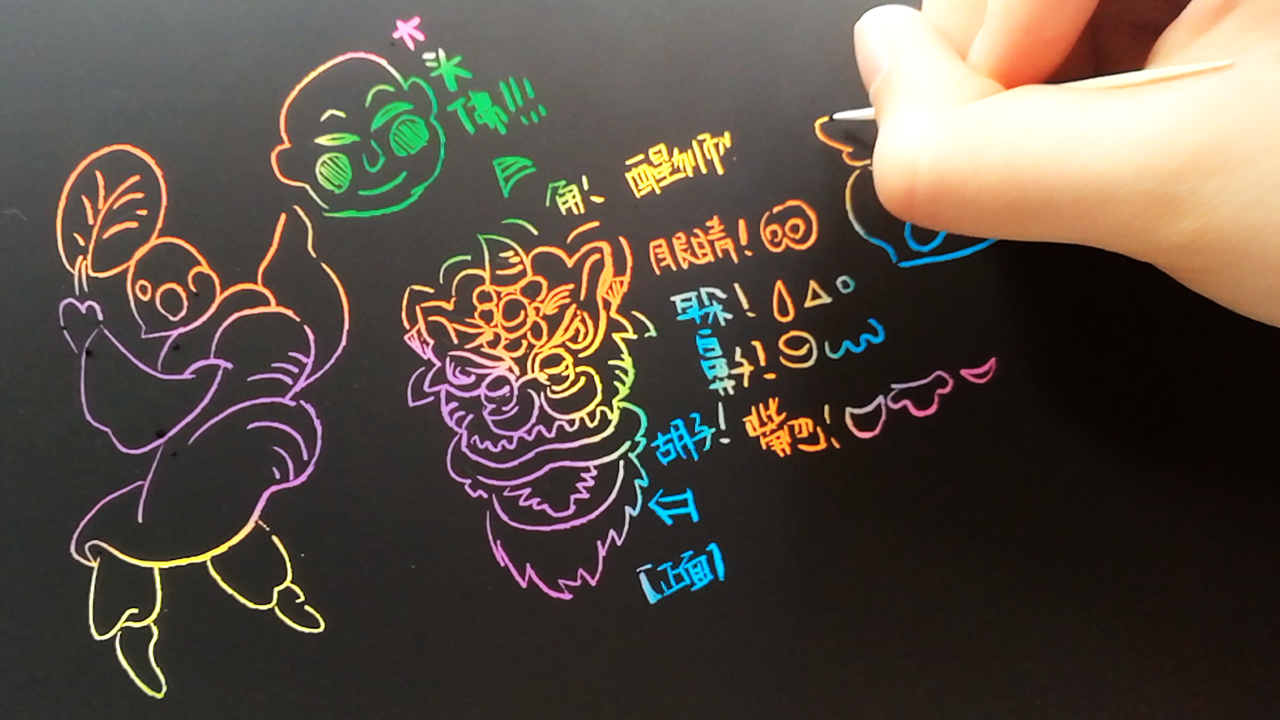 大
头
佛!!!
角! 醒狮
眼睛!
耳朵!
鼻子!
胡子! 嘴巴!
[正面]